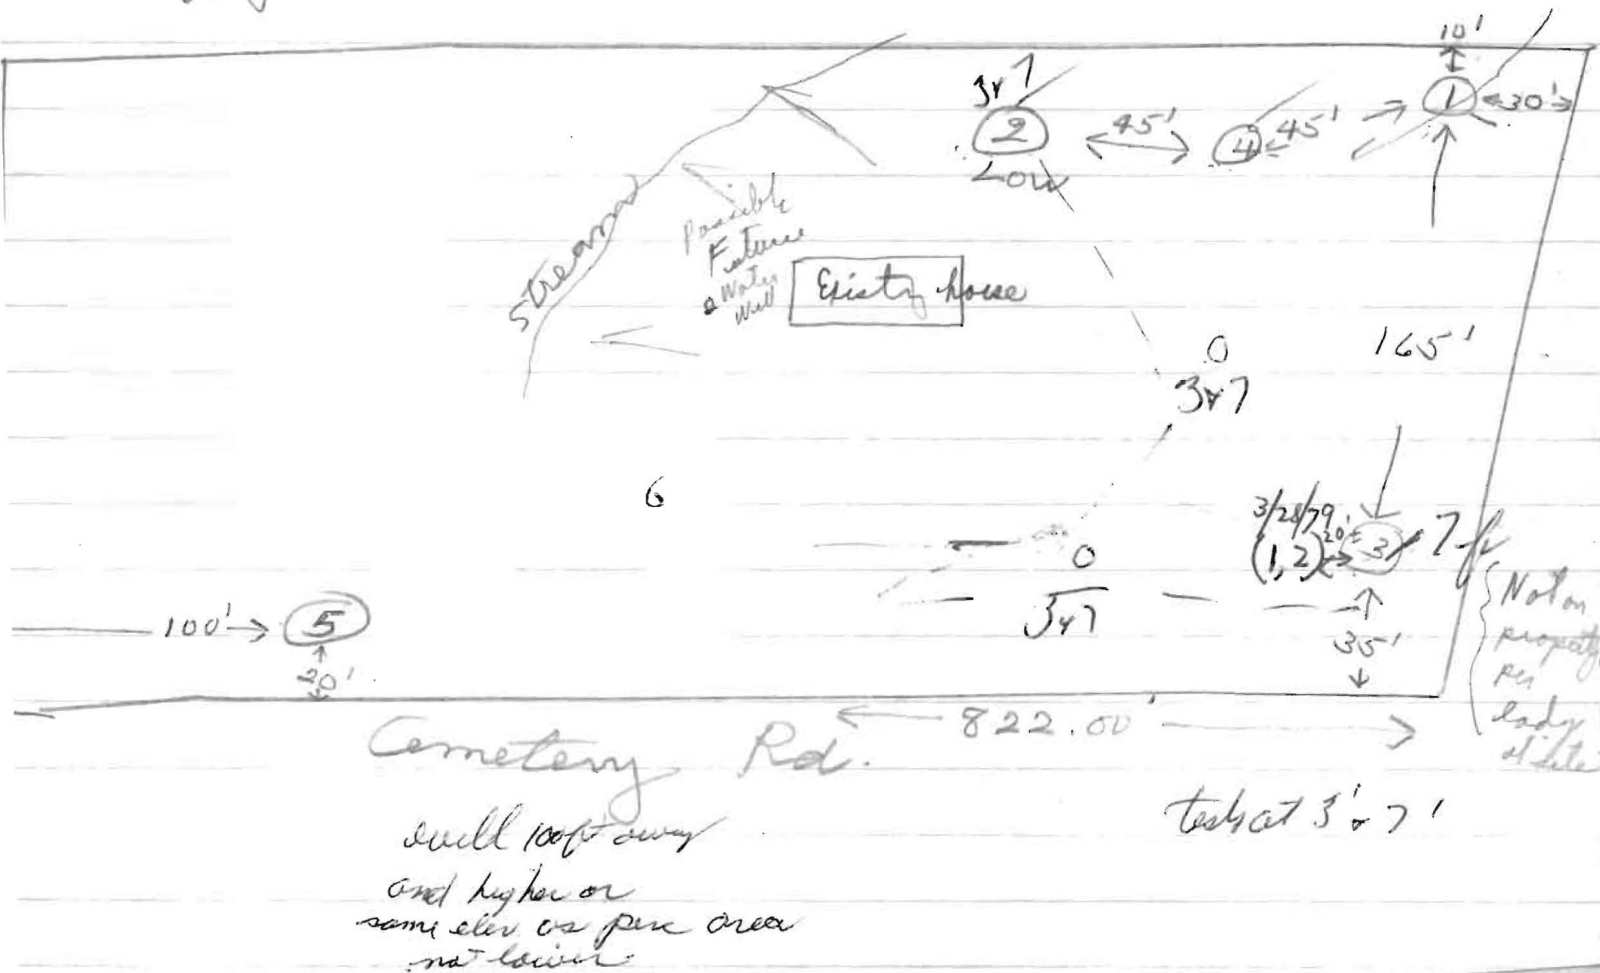 10'
3 & 7
1
30'
2
45'
4
45'
Low
Stream
Possible
Future
Water
Well
Existy house
0
3 & 7
165'
6
3/28/79
(1, 2)
20'
3
7 ft
0
3 & 7
100'
5
20'
35'
Not on
property
per
lady
at site
822.00'
Cemetery Rd.
well 100ft away
and higher or
same elev as perc area
not lower
tests at 3' & 7'